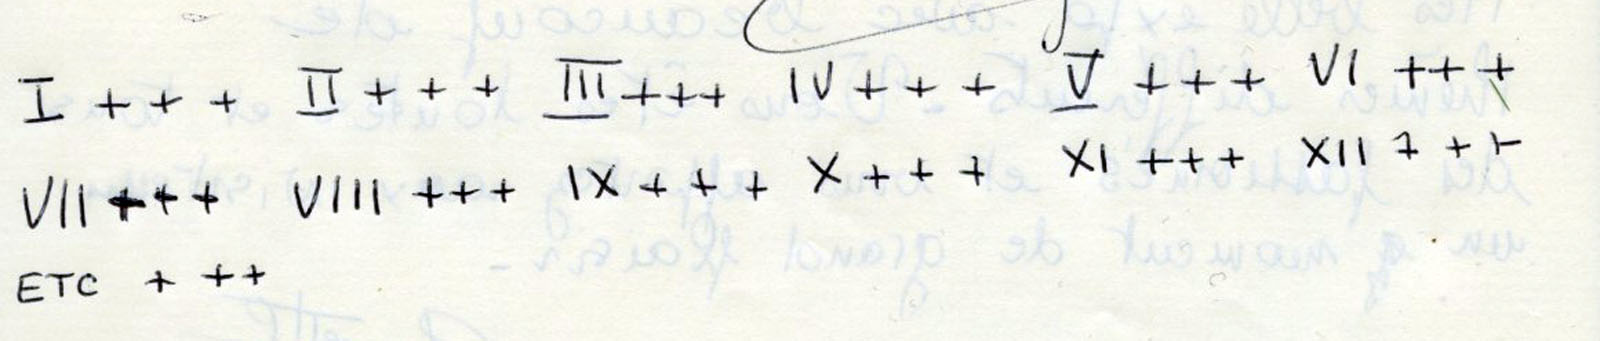 I + + + II + + + III +++ IV + + + V + + + VI +++
VII +++ VIII +++ IX + + + X + + + XI +++ XII + + +
ETC + ++